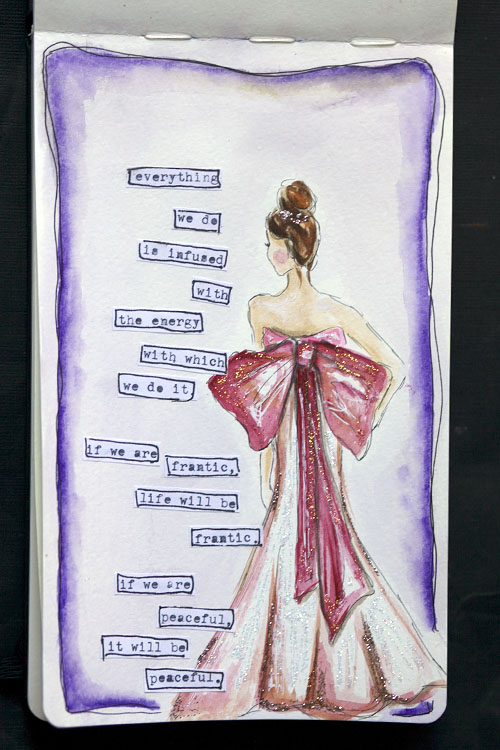 everything
we do
is infused
with
the energy
with which
we do it.
if we are frantic,
life will be
frantic.
if we are
peaceful,
it will be
peaceful.